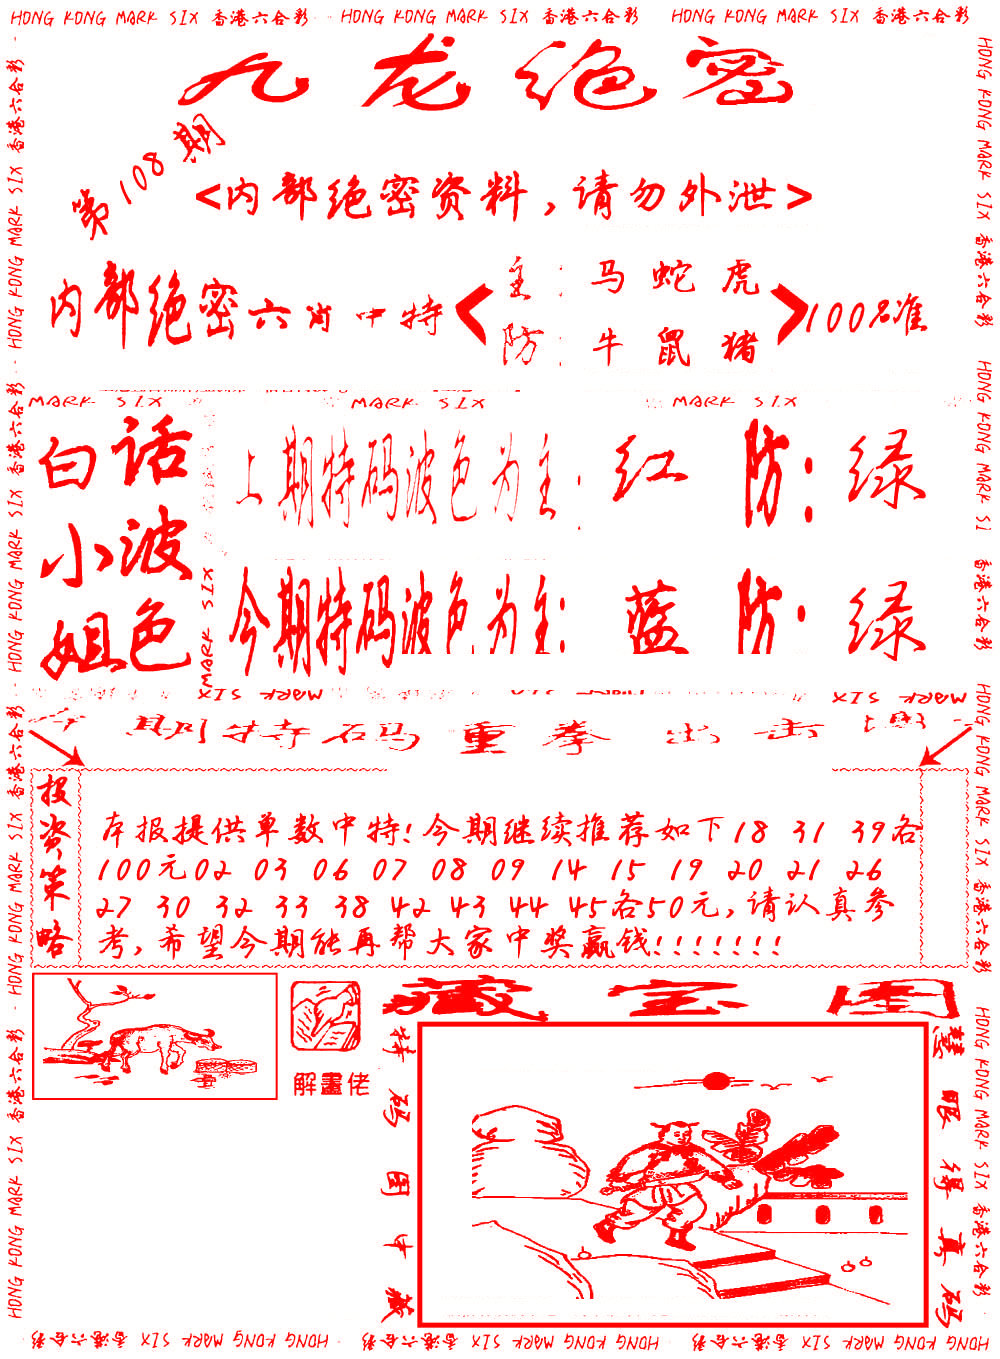 HONG KONG MARK SIX 香港六合彩 HONG KONG MARK SIX 香港六合彩 HONG KONG MARK SIX 香港六合彩
九龙绝密
第108期
<内部绝密资料,请勿外泄>
内部绝密六肖中特
主:马蛇虎
防:牛鼠猪
100%准
MARK SIX MARK SIX MARK SIX
白话
小波
姐色
上期特码波色为主:红 防:绿
今期特码波色为主:蓝 防:绿
MARK SIX
期特码重拳出击
投资策略
本报提供单数中特!今期继续推荐如下18 31 39各
100元02 03 06 07 08 09 14 15 19 20 21 26
27 30 32 33 38 42 43 44 45各50元,请认真参
考,希望今期能再帮大家中奖赢钱!!!!!!!
藏宝图
解畫佬
特码图中藏
慧眼得真码
HONG KONG MARK SIX 香港六合彩 HONG KONG MARK SIX 香港六合彩 HONG KONG MARK SIX 香港六合彩